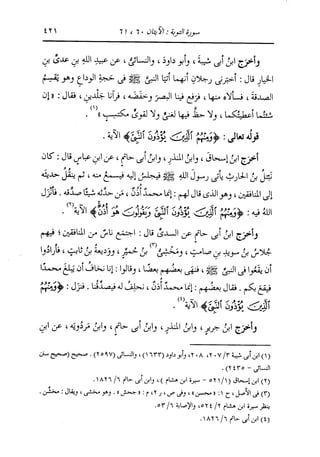 سورة التوبة : الآيتان ٦٠ ، ٦١ ٤٢١
وأخرَج ابنُ أبى شيبةَ ، وأبو داودَ ، والنسائىُّ ، عن عبيدِ اللهِ بنِ عدىِّ بنِ
الخِيارِ قال : أخبَرنى رجلان أنهما أتيا النبىَّ ﷺ فى حجةِ الوداعِ وهو يَقسِمُ
الصدقةَ ، فسألاه منها ، فرفَع فينا البصرَ وخفَضه ، فرآنا جَلْدين ، فقال : « إن
شئتُما أعطيتُكما ، ولا حظَّ فيها لغنىٍّ ولا لقوىٍّ مكتسِبٍ »(١).
قولُه تعالى : ﴿ وَمِنْهُمُ ٱلَّذِينَ يُؤْذُونَ ٱلنَّبِىَّ ﴾ الآية .
أخرَج ابنُ إسحاقَ ، وابنُ المنذرِ ، وابنُ أبى حاتمٍ ، عن ابنِ عباسٍ قال : كان
نَبْتَلُ بنُ الحارثِ يأتى رسولَ اللهِ ﷺ فيجلِسُ إليه فيسمَعُ منه ، ثم ينقُلُ حديثَه
إلى المنافقين ، وهو الذى قال لهم : إنما محمدٌ أُذُنٌ ، مَن حدَّثه شيئًا صدَّقه . فأنزَل
اللهُ فيه : ﴿ وَمِنْهُمُ ٱلَّذِينَ يُؤْذُونَ ٱلنَّبِىَّ وَيَقُولُونَ هُوَ أُذُنٌ ﴾ الآية(٢).
وأخرَج ابنُ أبى حاتمٍ عن السدىِّ قال : اجتمَع ناسٌ من المنافقين ؛ فيهم
جُلَاسُ بنُ سويدِ بنِ صامتٍ ، ومَخْشِىُّ(٣) بنُ حُمَيِّرٍ ، ووديعةُ بنُ ثابتٍ ، فأرادوا
أن يقَعُوا فى النبىِّ ﷺ ، فنهى بعضُهم بعضًا ، وقالوا : إنا نخافُ أن يبلُغَ محمدًا
فيقعَ بكم . فقال بعضُهم : إنما محمدٌ أُذُنٌ ، نحلِفُ له فيصدِّقُنا . فنزَل : ﴿ وَمِنْهُمُ
ٱلَّذِينَ يُؤْذُونَ ٱلنَّبِىَّ ﴾ الآية(٤).
وأخرَج ابنُ جريرٍ ، وابنُ المنذرِ ، وابنُ أبى حاتمٍ ، وابنُ مَردُويَه ، عن ابنِ
(١) ابن أبى شيبة ٣/ ٢٠٧، ٢٠٨، وأبو داود (١٦٣٣)، والنسائى (٢٥٩٧). صحيح (صحيح سنن
النسائى - ٢٤٣٥).
(٢) ابن إسحاق (١/ ٥٢١ - سيرة ابن هشام)، وابن أبى حاتم ٦/ ١٨٢٦.
(٣) فى الأصل، ح ١: «محسن»، وفى ص، ر ٢، م: «جحش». وهو مخشى، ويقال: مخشن.
ينظر سيرة ابن هشام ٢/ ٥٢٤، والإصابة ٦/ ٥٣.
(٤) ابن أبى حاتم ٦/ ١٨٢٦.